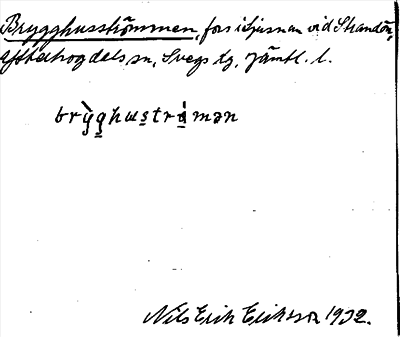 Brygghusströmmen, fors i Ljusnan vid Strandön,
Ytterhogdals sn, Svegs tg, Jämtl. l.
brỳg̱husṯrå̀mən
Nils Erik Eriksson 1932.